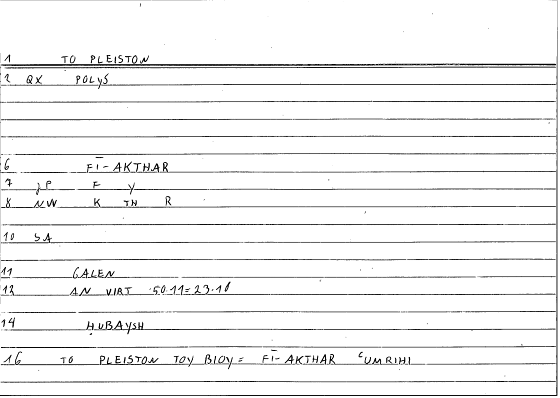 1 TO PLEISTON
2 QX POLYS
6 FĪ-AKTHAR
7 JP F Y
8 NW K TH R
10 SA
11 GALEN
12 AN VIRT 50.11=23.18
14 ḤUBAYSH
16 TO PLEISTON TOY BIOY = FĪ-AKTHAR ʿUMRIHI